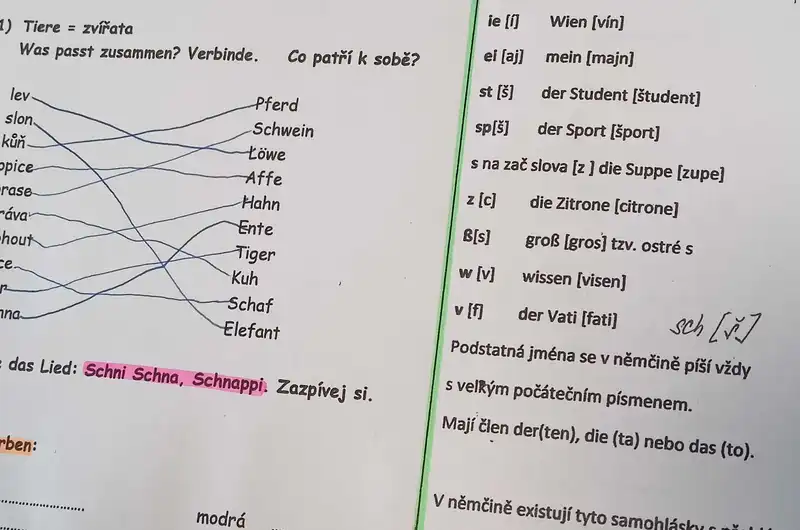 1) Tiere = zvířata
Was passt zusammen? Verbinde. Co patří k sobě?
lev
slon
kůň
opice
rase
ráva
hout
ce
r
na
Pferd
Schwein
Löwe
Affe
Hahn
Ente
Tiger
Kuh
Schaf
Elefant
das Lied: Schni Schna, Schnappi. Zazpívej si.
rben:
modrá
ie [í] Wien [vín]
ei [aj] mein [majn]
st [š] der Student [študent]
sp[š] der Sport [šport]
s na zač slova [z ] die Suppe [zupe]
z [c] die Zitrone [citrone]
ß[s] groß [gros] tzv. ostré s
w [v] wissen [visen]
v [f] der Vati [fati]
sch [š]
Podstatná jména se v němčině píší vždy
s velkým počátečním písmenem.
Mají člen der(ten), die (ta) nebo das (to).
V němčině existují tyto samohlásky s